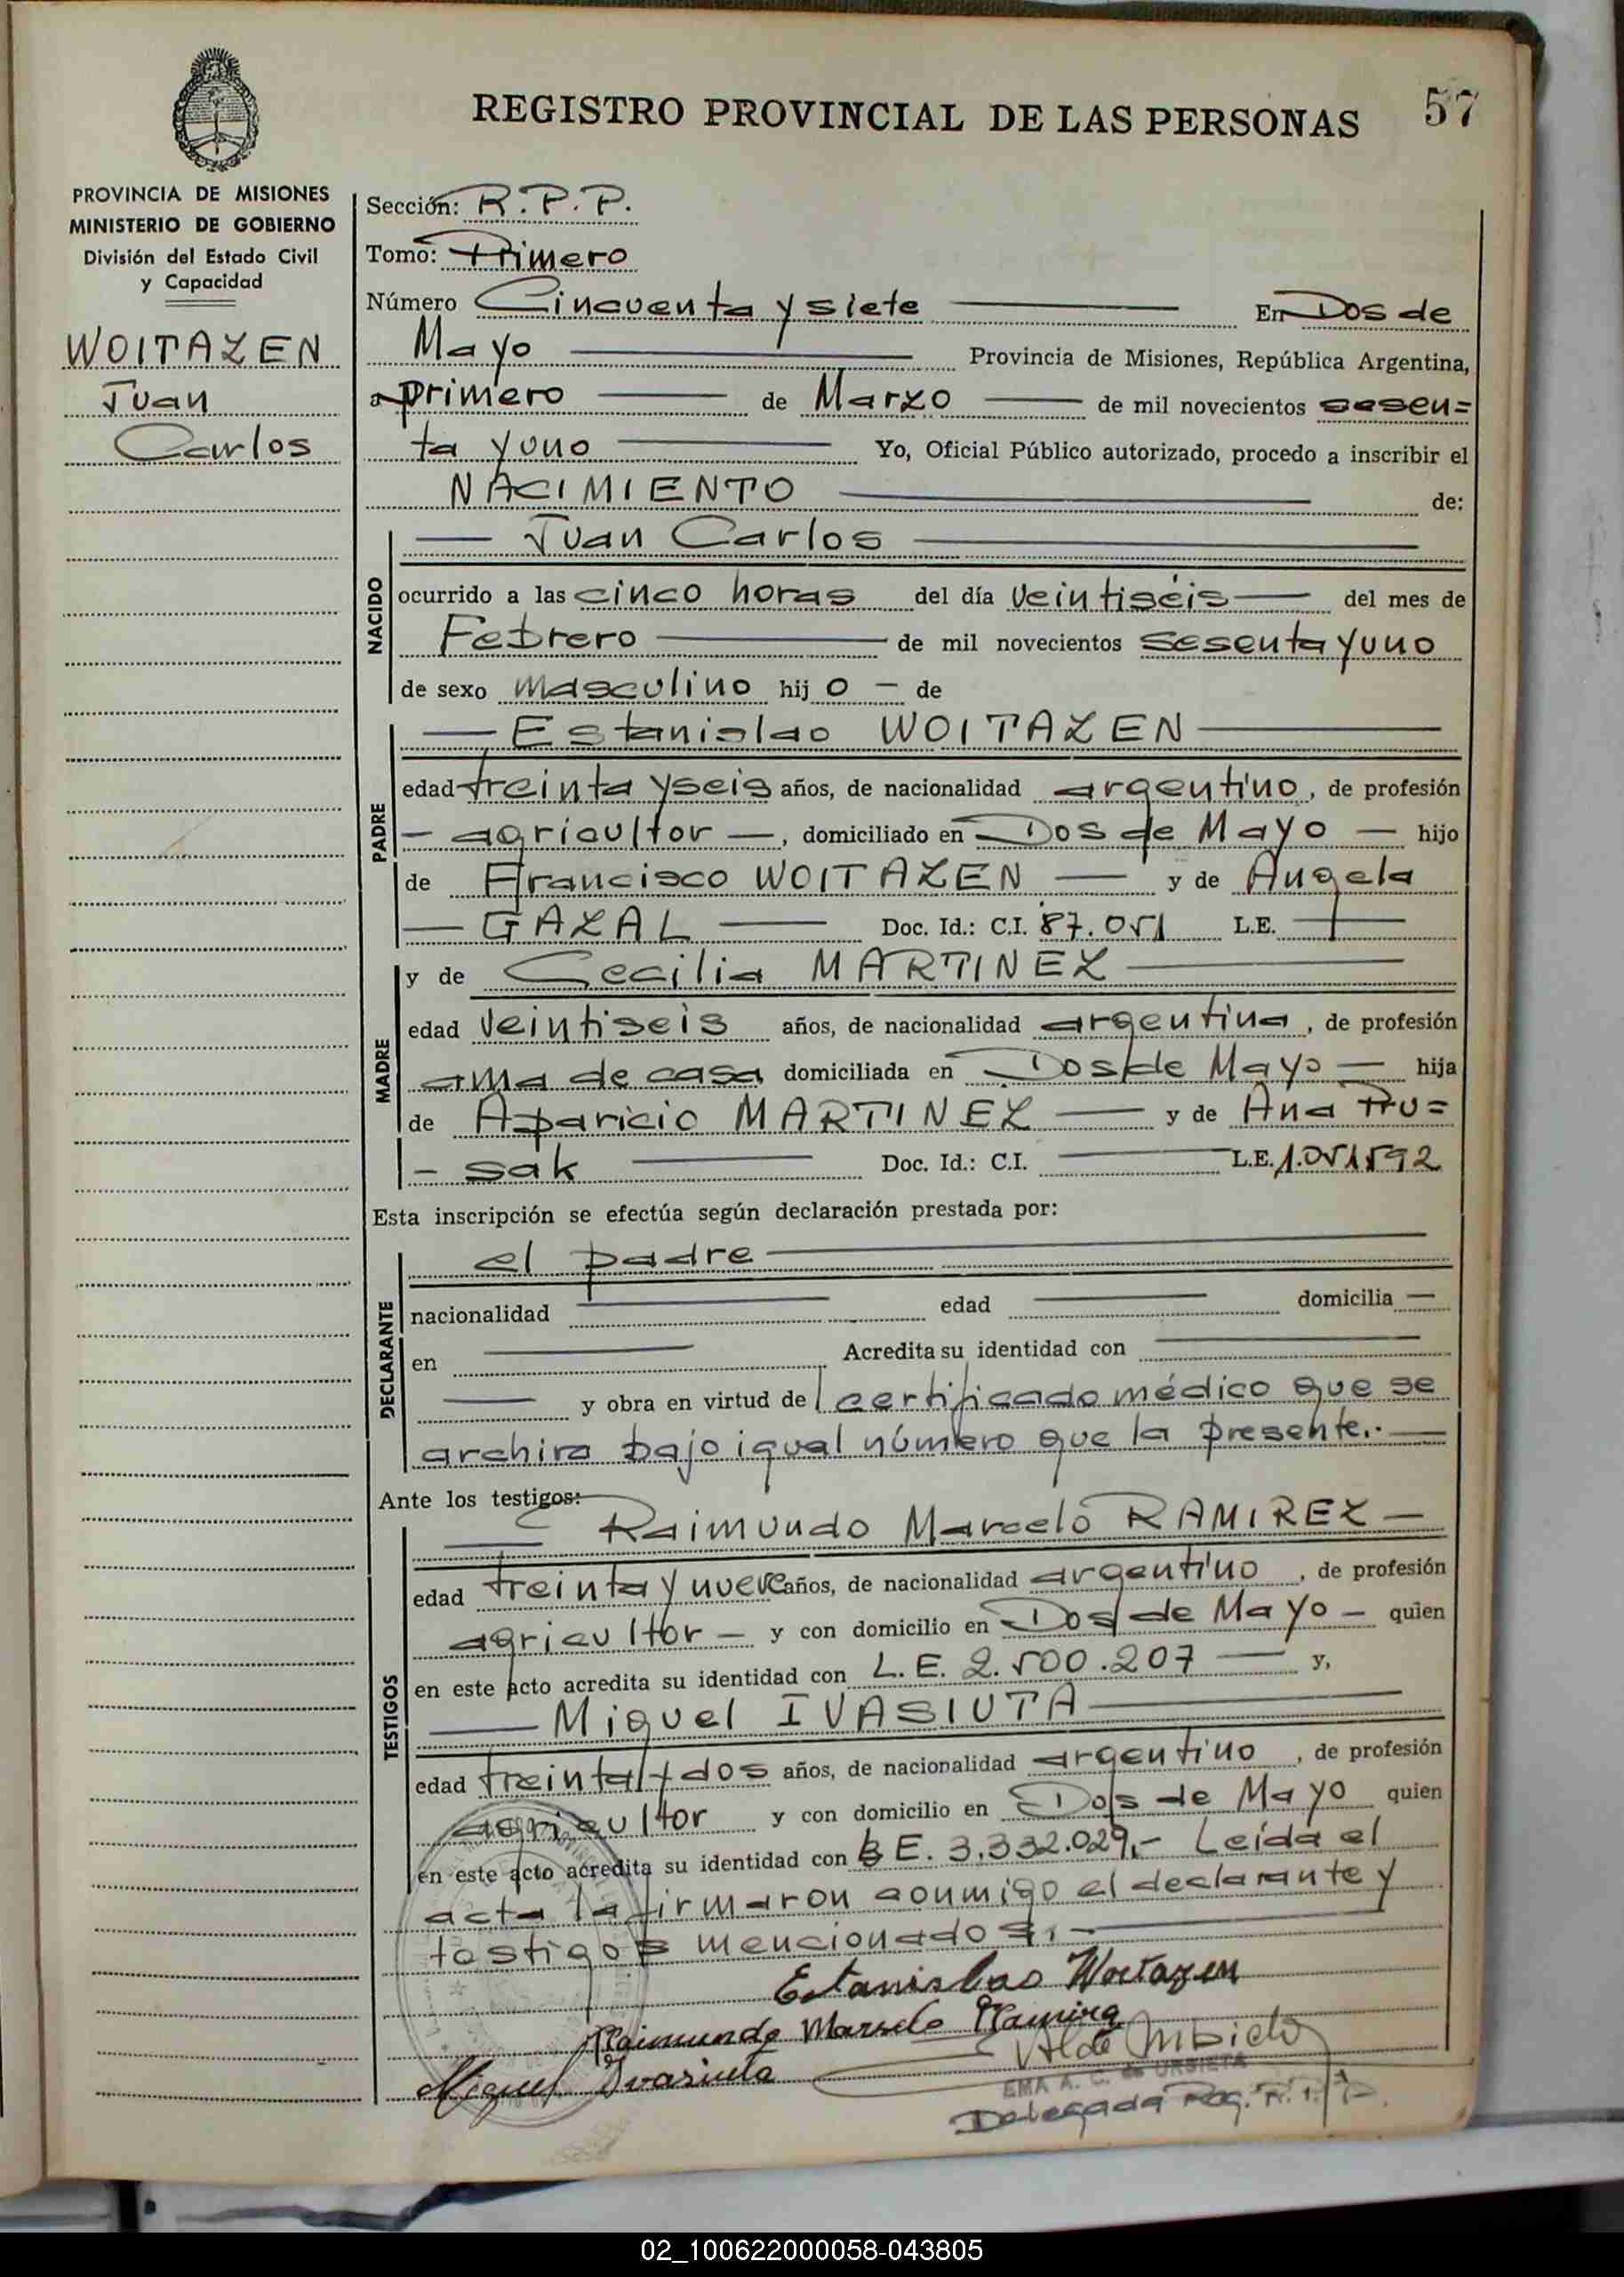 REGISTRO PROVINCIAL DE LAS PERSONAS 57
PROVINCIA DE MISIONES
MINISTERIO DE GOBIERNO
División del Estado Civil
y Capacidad
WOITAZEN
Juan
Carlos
Sección: R.P.P.
Tomo: Primero
Número Cincuenta y siete En Dos de
Mayo Provincia de Misiones, República Argentina,
a primero de Marzo de mil novecientos sesen=
ta y uno Yo, Oficial Público autorizado, procedo a inscribir el
NACIMIENTO de:
NACIDO
Juan Carlos
ocurrido a las cinco horas del día veintiséis del mes de
Febrero de mil novecientos sesenta y uno
de sexo masculino hijo de
PADRE
Estanislao WOITAZEN
edad treinta y seis años, de nacionalidad argentino, de profesión
agricultor, domiciliado en Dos de Mayo hijo
de Francisco WOITAZEN y de Angela
GAZAL Doc. Id.: C.I. 87.051 L.E.
MADRE
y de Cecilia MARTINEZ
edad veintiseis años, de nacionalidad argentina, de profesión
ama de casa domiciliada en Dos de Mayo hija
de Aparicio MARTINEZ y de Ana Pru=
- sak Doc. Id.: C.I. L.E. 1.051592
Esta inscripción se efectúa según declaración prestada por:
DECLARANTE
el padre
nacionalidad edad domicilia
en Acredita su identidad con
y obra en virtud de certificado médico que se
archiva bajo igual número que la presente.-
Ante los testigos:
TESTIGOS
Raimundo Marcelo RAMIREZ
edad treinta y nueve años, de nacionalidad argentino, de profesión
agricultor y con domicilio en Dos de Mayo quien
en este acto acredita su identidad con L.E. 2.500.207 y,
Miguel IVASIUTA
edad treinta y dos años, de nacionalidad argentino, de profesión
agricultor y con domicilio en Dos de Mayo quien
en este acto acredita su identidad con L.E. 3.332.029.- Leída el
acta la firmaron conmigo el declarante y
testigos mencionados.-
Estanislao Woitazen
Raimundo Marselo Ramirez
Miguel Ivasiuta
EMA A. C. de URBIETA
Delegada Reg. P. P.
02_100622000058-043805